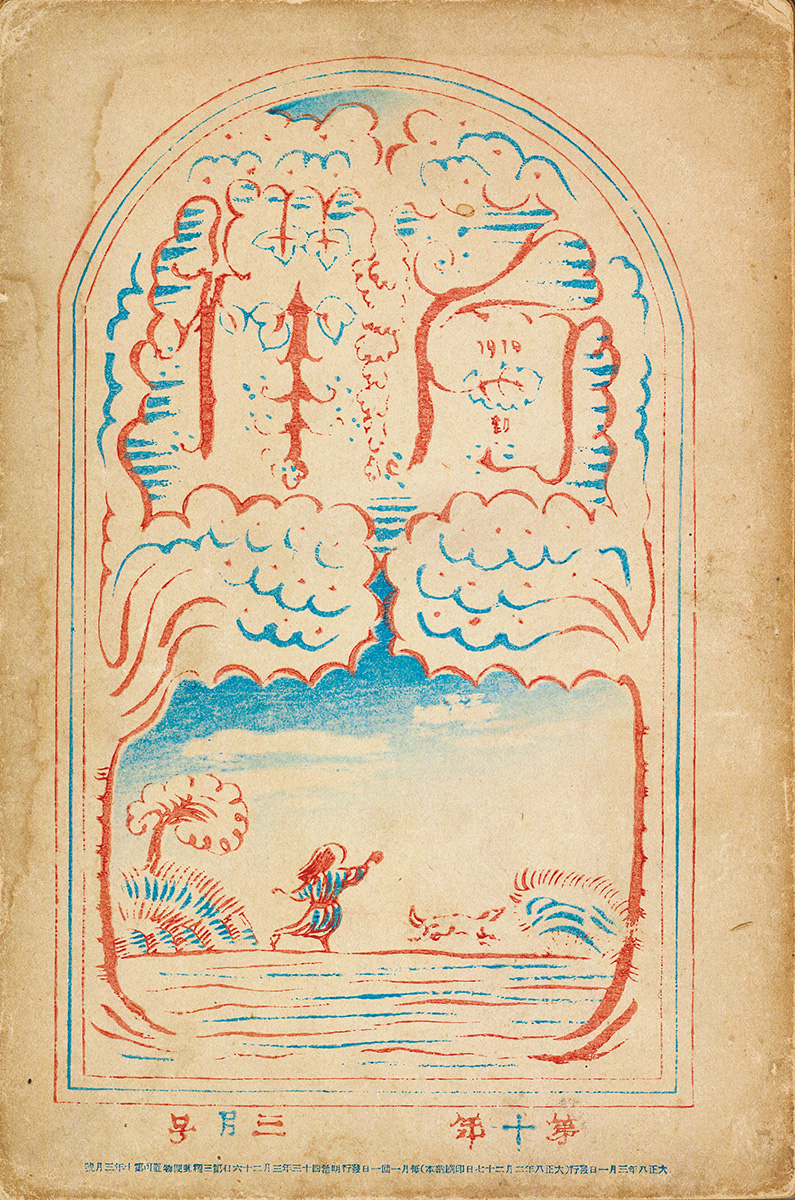 白樺
1919
劉
第十年 三月号
大正八年三月一日發行(大正八年二月二十七日印刷納本)毎月一回一日發行明治四十三年三月二十六日第三種郵便物認可第十年三月號